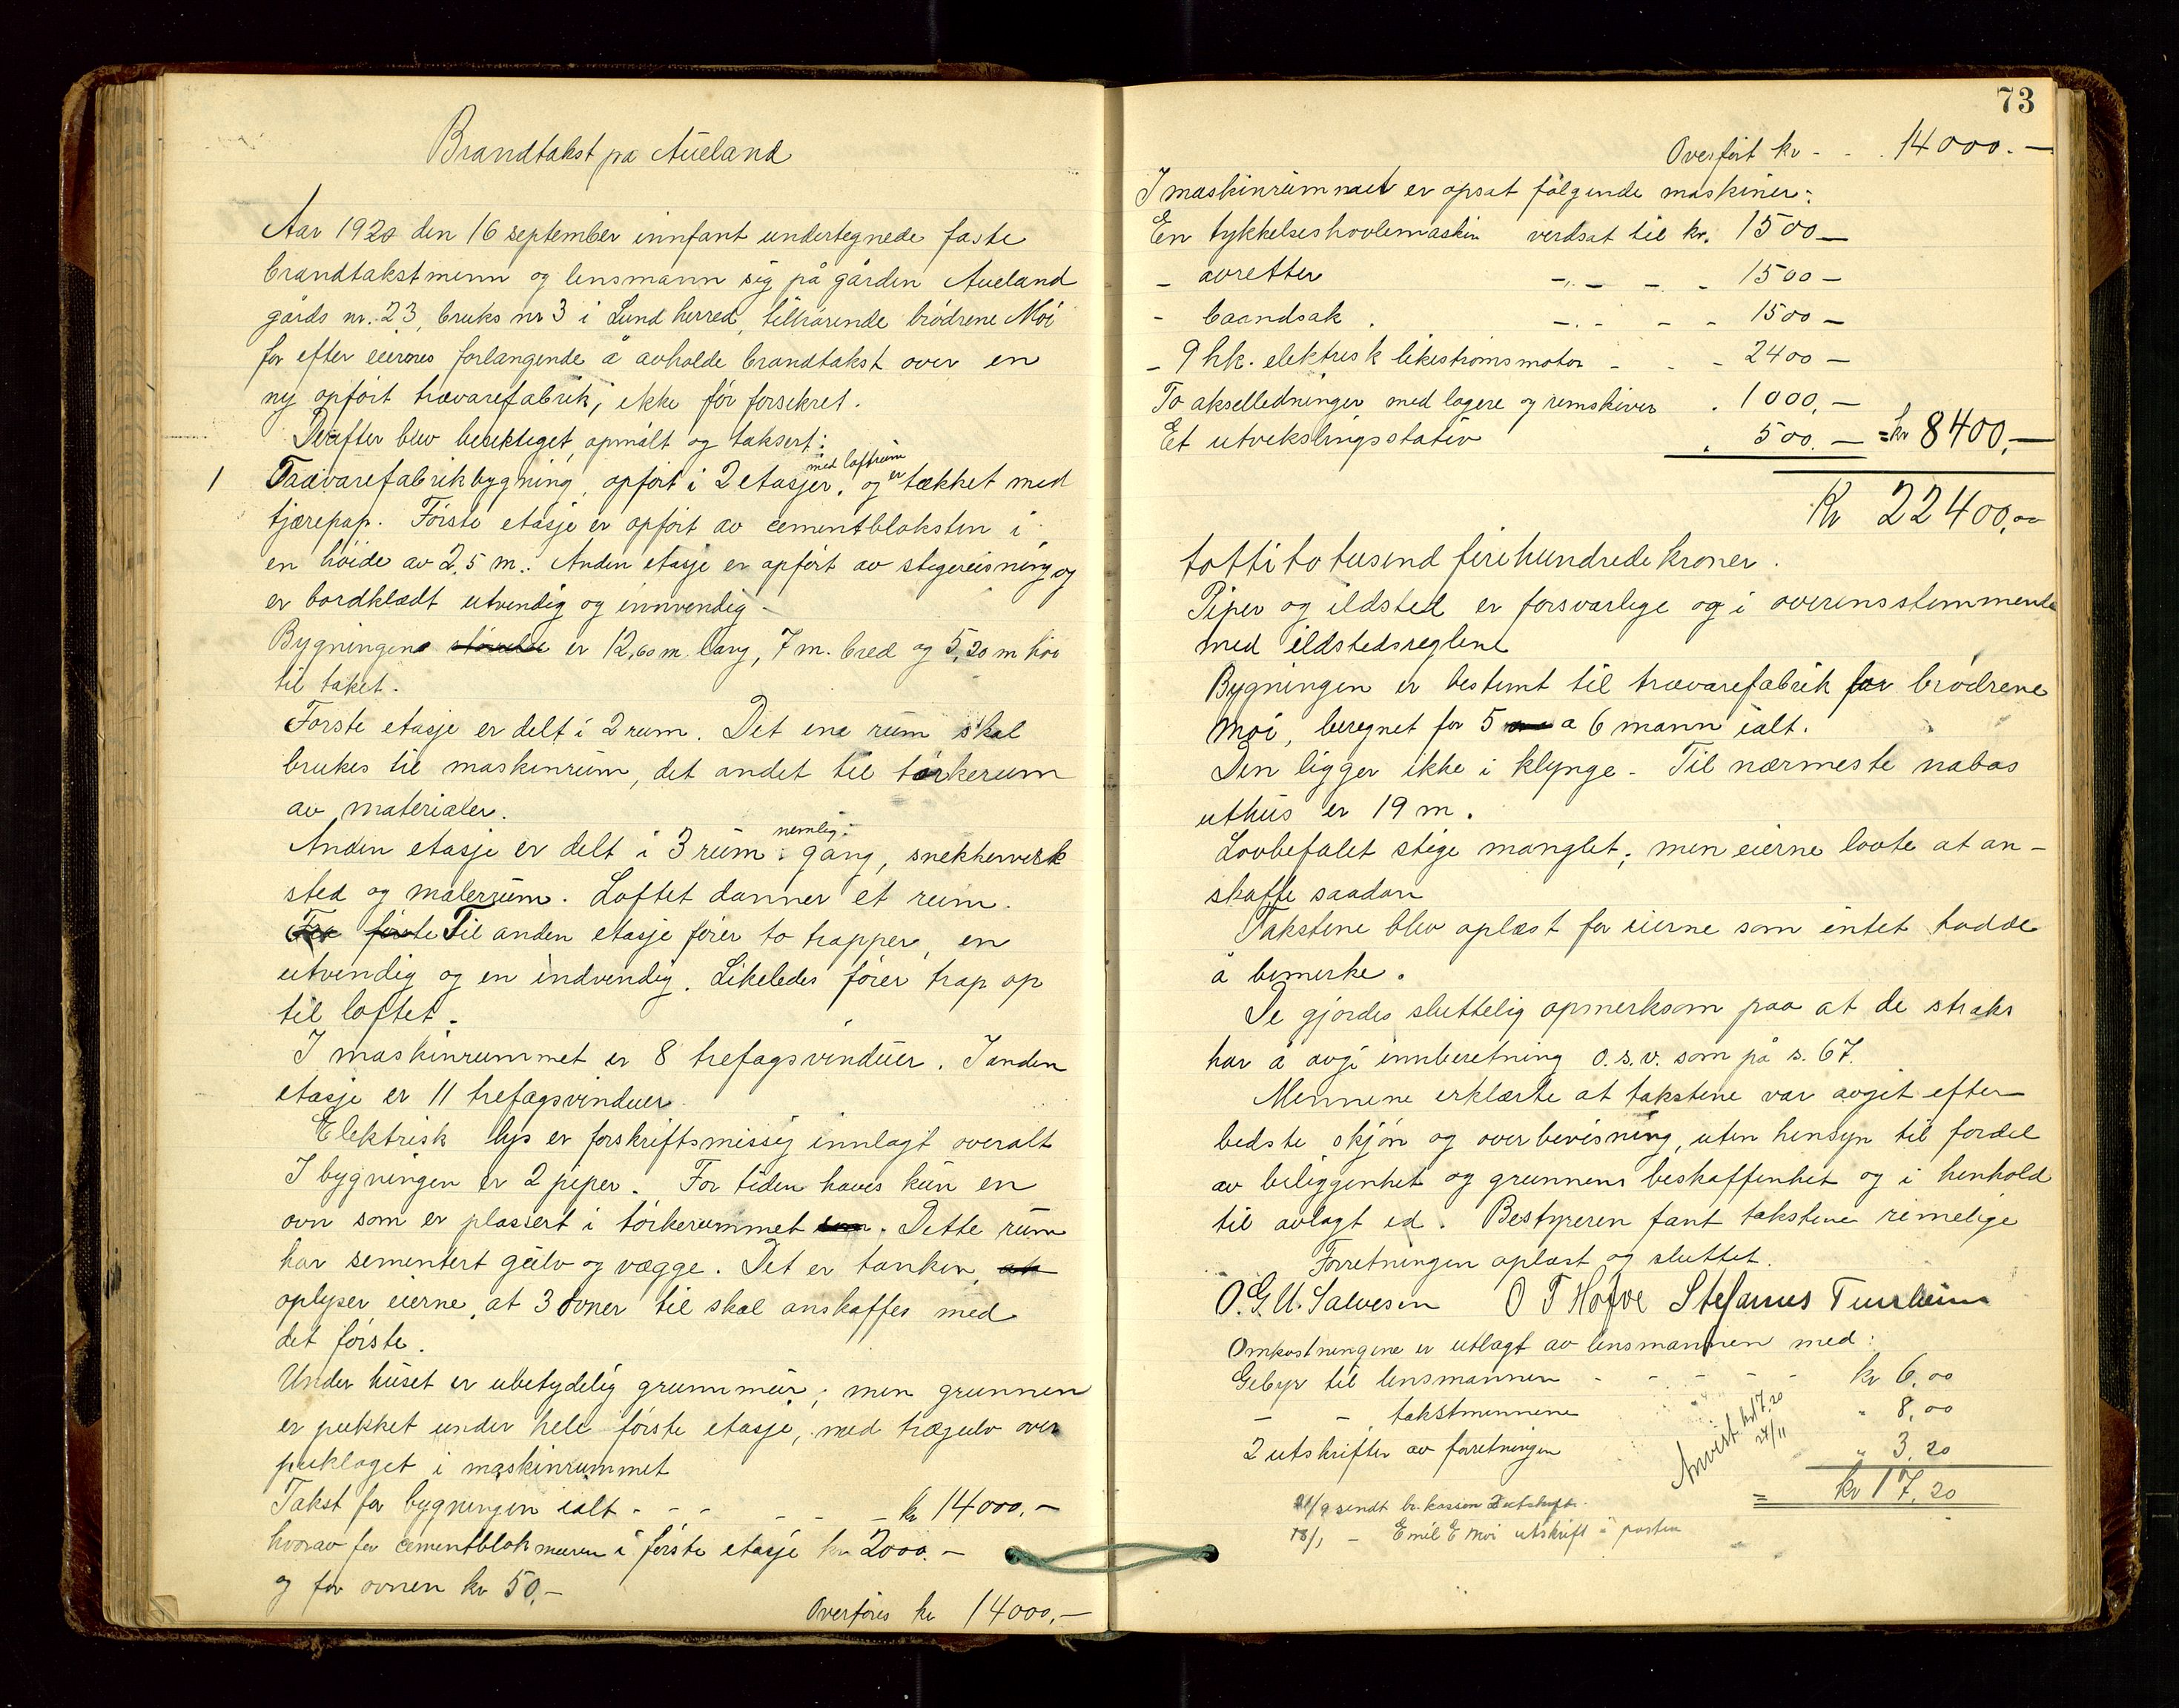 Brandtakst pa Aueland
Aar 1920 den 16 september innfant undertegnede faste
brandtakstmenn og lensmann sig på gården Aueland
gårds nr. 23, bruks nr 3 i Lund herred, tilhørende brødrene Moi
for efter eiernes forlangende å avholde brandtakst over en
ny opført trævarefabrik, ikke før forsikret.
Derefter blev besiktiget, opmålt og taksert:
1 Trævarefabrikbygning, opført i 2 etasjer, med loftrum og er tækket med
tjærepap. Første etasje er opført av cementbloksten i
en høide av 2,5 m. Anden etasje er opført av stegereisning og
er bordklædt utvendig og innvendig.
Bygningen er 12,60 m. lang, 7 m. bred og 5,20 m høi
til taket.
Første etasje er delt i 2 rum. Det ene rum skal
brukes til maskinrum, det andet til tørkerum
av materialer.
Anden etasje er delt i 3 rum nemlig: gang, snekkerverk
sted og malerrum. Loftet danner et rum.
Til anden etasje fører to trapper, en
utvendig og en indvendig. Likeledes fører trap op
til loftet.
I maskinrummet er 8 trefagsvinduer. I anden
etasje er 11 trefagsvinduer.
Elektrisk lys er forskriftsmessig innlagt overalt
I bygningen er 2 piper. For tiden haves kun en
ovn som er plassert i tørkerummet. Dette rum
har sementert gulv og vægge. Det er tanken,
oplyser eierne, at 3 ovner til skal anskaffes med
det første.
Under huset er ubetydelig grunnmur; men grunnen
er pukket under hele første etasje, med trægulv over
puklaget i maskinrummet
Takst for bygningen ialt - - - - - - kr 14000.-
hvorav for cementblokmuren i første etasje kr 2000.-
og for ovnen kr 50,-
Overføres kr 14000,-
73
Overført kr - - . 14000.-
I maskinrummet er opsat følgende maskiner:
En tykkelseshøvlemaskin verdsat til kr. 1500-
- avretter -"- - - 1500-
- baandsak -"- - - 1500-
- 9 hk. elektrisk likestrømsmotor - - - 2400-
To akselledninger med lagere og remskiver . 1000,-
Et utvekslingsstativ . 500.- = kr 8400,-
Kr 22400,00
totti to tusend firehundrede kroner.
Piper og ildsted er forsvarlige og i overensstemmende
med ildstedsreglene
Bygningen er bestemt til trævarefabrik for brødrene
Moi, beregnet for 5 a 6 mann ialt.
Den ligger ikke i klynge. Til nærmeste nabos
uthus er 19 m.
Lovbefalet stige manglet; men eierne lovte at an-
skaffe saadan
Takstene blev oplæst for eierne som intet hadde
å bemerke.
De gjordes sluttelig opmerksom paa at de straks
har å avgi innberetning o.s.v. som på s. 67.
Mennene erklærte at takstene var avgit efter
bedste skjøn og overbevisning, uten hensyn til fordel
av beliggenhet og grunnens beskaffenhet og i henhold
til avlagt ed. Bestyreren fant takstene rimelige
Forretningen oplæst og sluttet.
O.G.U. Salvesen O T Hofve Stefanus
Omkostningene er utlagt av lensmannen med:
Gebyr til lensmannen - - - - - kr 6,00
- - takstmennene " 8,00
2 utskrifter av forretningen " 3,20
= kr 17,20
Anvist kr 17,20
24/11
21/9 sendt br.kassen 2 utskrift.
13/1 - Emil E Moi utskrift i posten